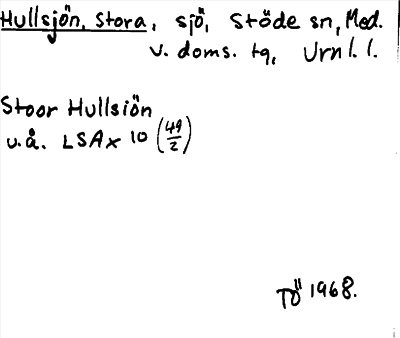 Hullsjön, Stora, sjö, Stöde sn, Med.
v. doms. tq, Urnl. l.
Stoor Hullsiön
u.å. LSA x 10 (49/2)
TÖ 1968.